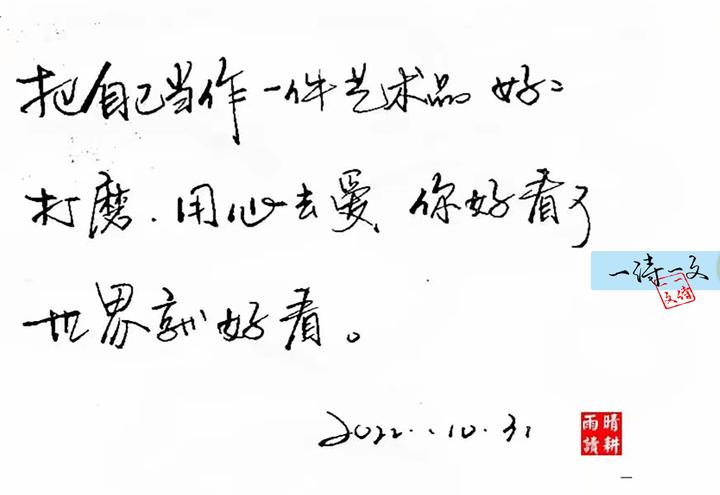 把自己当作一件艺术品 好〻
打磨.用心去爱,你好看了
世界就好看。
一诗一文
一诗
一文
2022..10.31
晴耕
雨讀